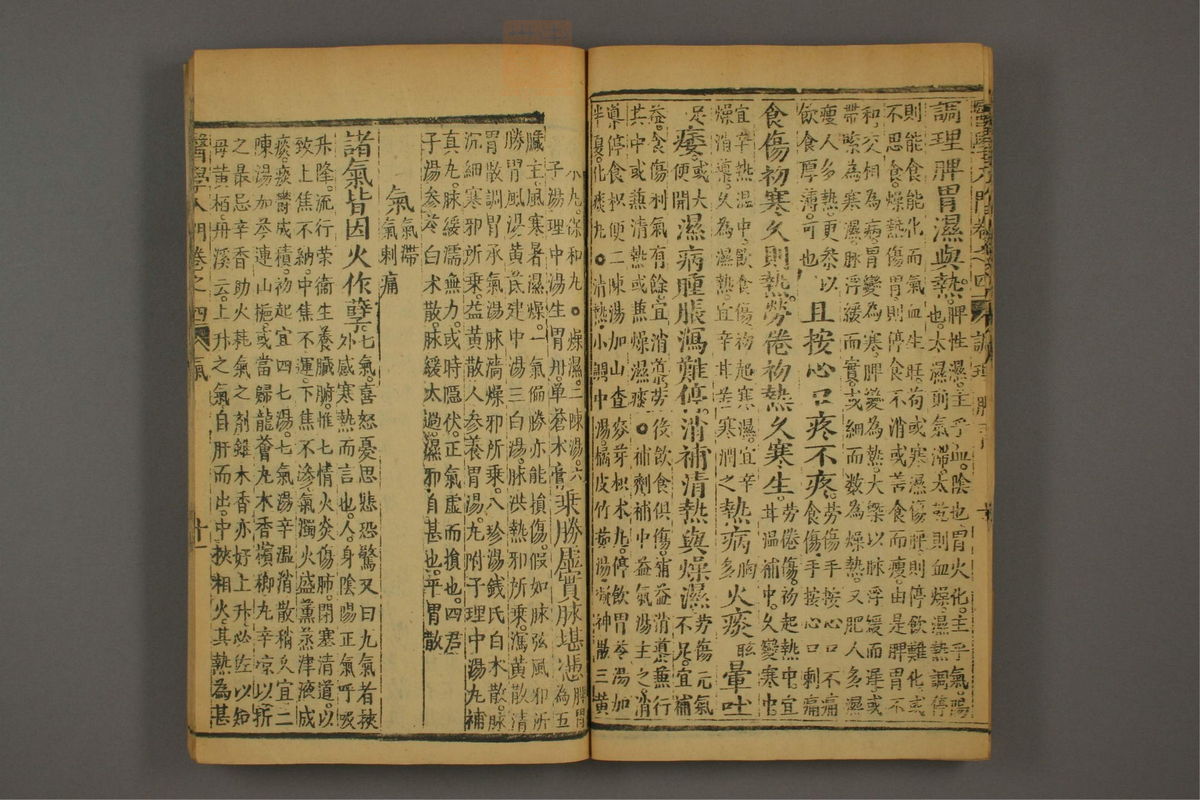 調理脾胃濕與熱。脾性濕。主乎血。陰也。胃火化。主乎氣。陽
也。太濕則氣滯。太熱則血燥。濕熱調停
則能食能化。而氣血生旺。苟或寒濕傷脾。則停飲難化。或
不思食。燥熱傷胃。則停食不消。或善食而瘦。由是脾胃不
和。交相為病。胃變為寒。脾變為熱。大槩以脉浮緩而遲。或
帶緊為寒濕。脉浮緩而實。或細而数為燥熱。又肥人多濕
瘦人多熱。更參以
飲食厚薄。可也。
且按心口疼不疼。勞傷手按心口不痛
食傷手按心口刺痛
食傷初寒久則熱。勞倦初熱久寒生。勞倦傷。初起熱中。宜
甘温補中。久變寒中
宜辛熱温中。飲食傷初起寒濕。宜辛
燥消導。久為濕熱。宜辛甘苦寒潤之
熱病多胸火痰眩暈吐
足痿。或大
便閉
濕病腫脹瀉難停。消補清熱與燥濕。勞傷元氣
不足。宜補
益。食傷利氣有餘。宜消導。勞後飲食俱傷。補益消導兼行
其中或兼清熱。或兼燥濕痰。補劑。補中益氣湯主之。消
導。停食。枳朮二陳湯加山查麥芽。枳朮丸。停飲。胃苓湯加
半夏。化痰丸。清熱。小調中湯。橘皮竹茹湯。凝神散。三黃
丸。保和丸。燥濕。二陳湯。六
子湯。理中湯。生胃丹。單蒼朮膏。
乘勝虛實脉堪憑。脾胃
為五
臟主。風寒暑濕燥。一氣偏勝。亦能損傷。假如脉弦。風邪所
勝。胃風湯。黃芪建中湯。三白湯。脉洪。熱邪所乘。瀉黃散。清
胃散。調胃承氣湯。脉濇。燥邪所乘。八珍湯。錢氏白朮散。脉
沉細。寒邪所乘。益黃散。人參養胃湯。九附子理中湯。九補
真丸。脉緩濡無力。或時隱伏。正氣虛而損也。四君
子湯。參苓白朮散。脉緩太過。濕邪自甚也。平胃散
氣 氣滯
氣刺痛
諸氣皆因火作孽。七氣。喜怒憂思悲恐驚。又曰九氣者。挾
外感寒熱而言也。人身陰陽正氣。呼吸
升降。流行榮衛。生養臟腑。惟七情火炎傷肺。閉塞清道。以
致上焦不納。中焦不運。下焦不滲。氣濁火盛。薰蒸津液成
痰。痰鬱成積。初起宜四七湯。七氣湯。辛温消散。稍久宜二
陳湯加芩連山梔。或當歸龍薈丸。木香檳榔丸。辛凉以折
之。最忌辛香助火耗氣之劑。雖木香亦好上升。必佐以知
母黃栢。丹溪云。上升之氣。自肝而出。中挾相火。其熱為甚
醫學入門卷之四 氣 十一